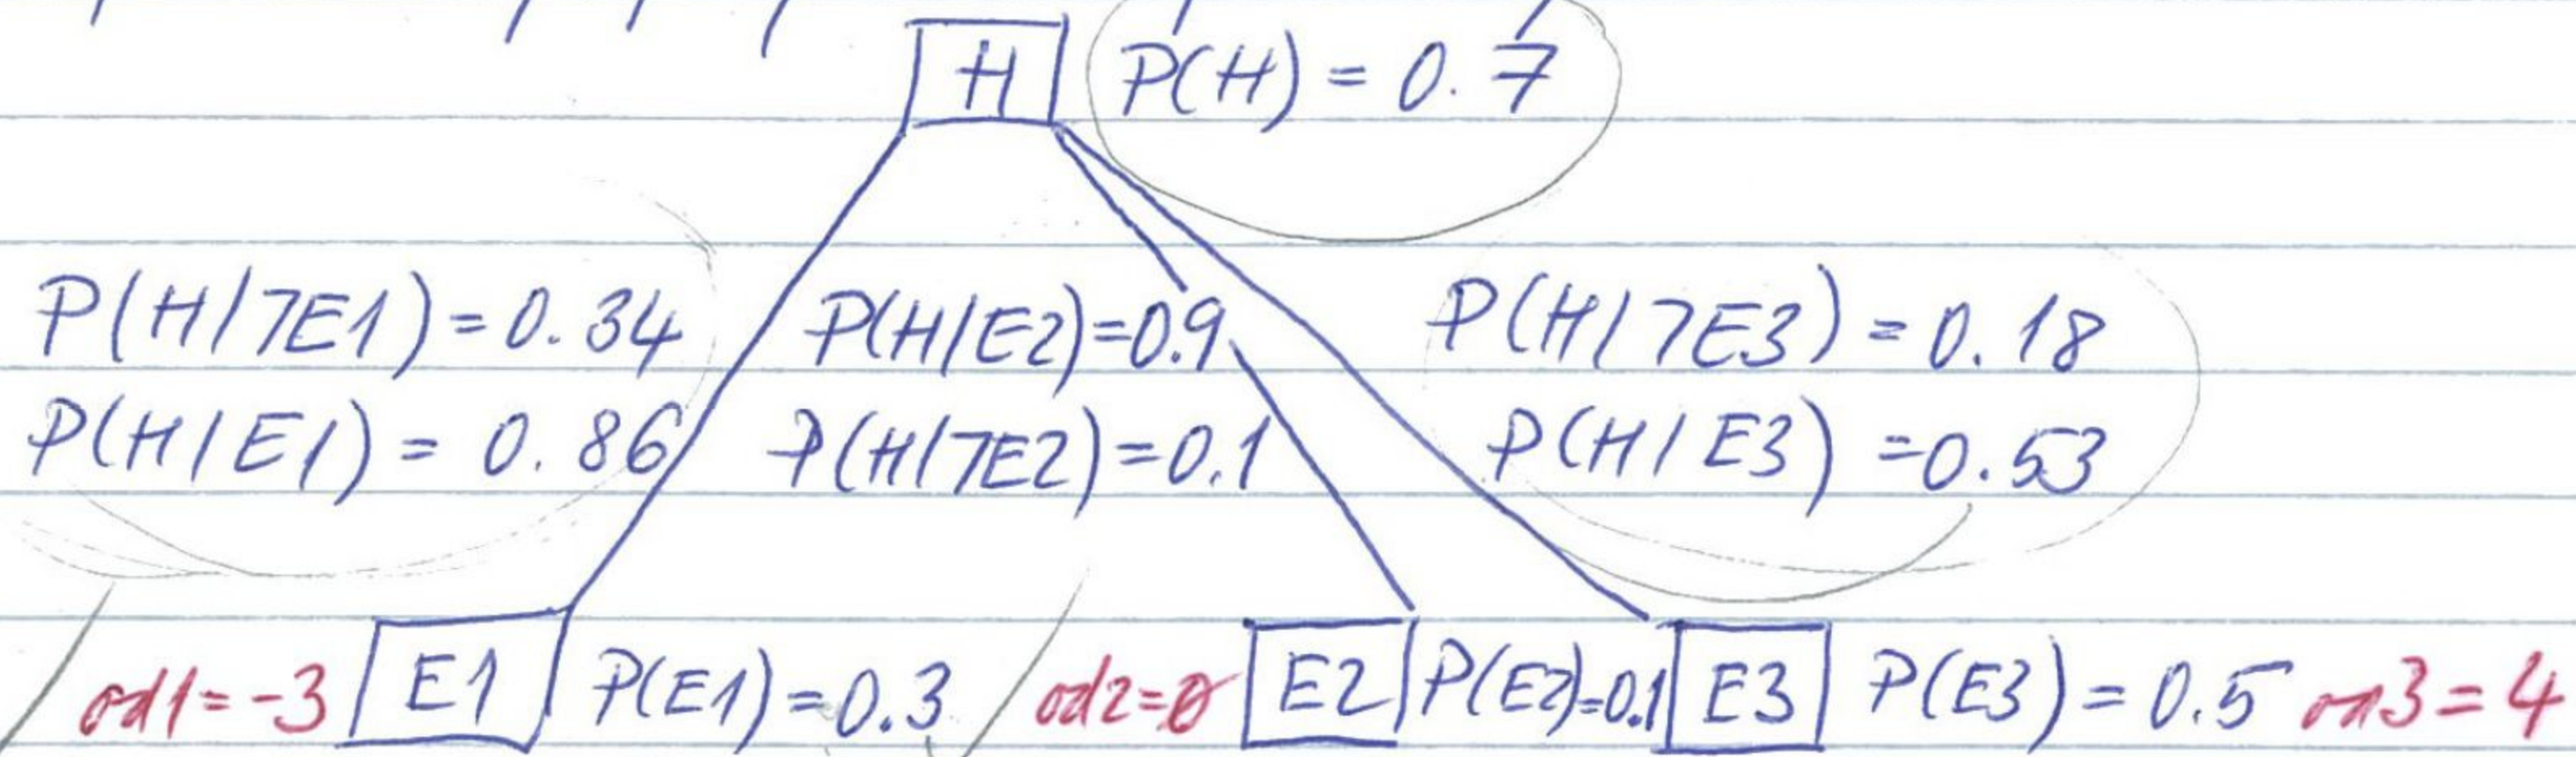 H P(H) = 0.7
P(H/7E1) = 0.34 P(H/E2)=0.9 P(H/7E3) = 0.18
P(H/E1) = 0.86 P(H/7E2)=0.1 P(H/E3) =0.53
od1=-3 E1 P(E1)=0.3 od2=0 E2 P(E2)=0.1 E3 P(E3)=0.5 od3=4